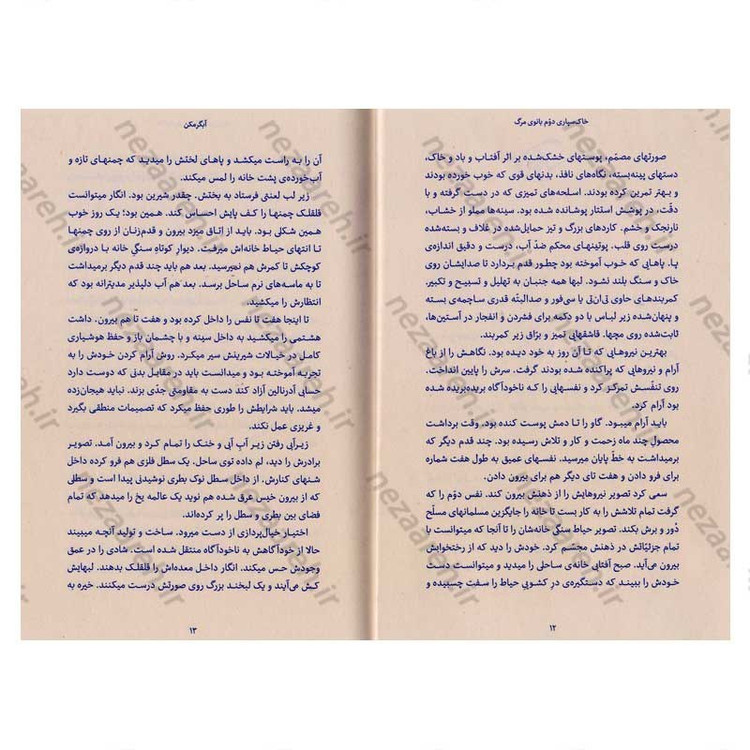 خاک‌سپاری دوّم بانوی مرگ
صورتهای مصمّم، پوستهای خشک‌شده بر اثر آفتاب و باد و خاک،
دستهای پینه‌بسته، نگاه‌های نافذ، بدنهای قوی که خوب خورده بودند
و بهتر تمرین کرده بودند. اسلحه‌های تمیزی که در دست گرفته و با
دقّت، در پوشش استتار پوشانده شده بود. سینه‌ها مملو از خشاب،
نارنجک و خشم. کاردهای بزرگ و تیز حمایل‌شده در غلاف و بسته‌شده
درست روی قلب. پوتینهای محکم ضدّ آب، درست و دقیق اندازه‌ی
پا. پاهایی که خوب آموخته بود چطور قدم بردارد تا صدایشان روی
خاک و سنگ بلند نشود. لبها همه جنبان به تهلیل و تسبیح و تکبیر،
کمربندهای حاوی تی‌ان‌تی یا سی‌فور و صدالبتّه قدری ساچمه‌ی بسته
و پنهان‌شده زیر لباس با دو دکمه برای فشردن و انفجار در آستین‌ها،
ثابت‌شده روی مچها. قاشقهایی تمیز و برّاق زیر کمربند.
بهترین نیروهایی که تا آن روز به خود دیده بود. نگاهش را از باغ
آرام و نیروهایی که پراکنده شده بودند گرفت. سرش را پایین انداخت.
روی تنفّسش تمرکز کرد و نفسهایی را که ناخودآگاه بریده‌بریده شده
بود آرام کرد.
باید آرام میبود. گاو را تا دمش پوست کنده بود. وقت برداشت
محصول چند ماه زحمت و کار و تلاش رسیده بود. چند قدم دیگر که
برمیداشت به خطّ پایان میرسید. نفسهای عمیق به طول هفت شماره
برای فرو دادن و هفت تای دیگر هم برای بیرون دادن.
سعی کرد تصویر نیروهایش را از ذهنش بیرون کند. نفس دوّم را که
گرفت تمام تلاشش را به کار بست تا خانه را جایگزین مسلمانهای مسلّح
دور و برش بکند. تصویر حیاط سنگی خانه‌شان را تا آنجا که میتوانست با
تمام جزئیّاتش در ذهنش مجسّم کرد. خودش را دید که از رختخوابش
بیرون می‌آید. صبح آفتابی خانه‌ی ساحلی را میدید و میتوانست دست
خودش را ببیند که دستگیره‌ی در کشویی حیاط را سفت چسبیده و
۱۲
آبگرمکن
آن را به راست میکشد و پاهای لختش را میدید که چمنهای تازه و
آب‌خورده‌ی پشت خانه را لمس میکند.
زیر لب لعنتی فرستاد به بختش. چقدر شیرین بود. انگار میتوانست
قلقلک چمنها را کف پایش احساس کند. همین بود؛ یک روز خوب
همین شکلی بود. باید از اتاق میزد بیرون و قدم‌زنان از روی چمنها
تا انتهای حیاط خانه‌اش میرفت. دیوار کوتاهِ سنگیِ خانه با دروازه‌ی
کوچکش تا کمرش هم نمیرسید. بعد هم باید چند قدم دیگر برمیداشت
تا به ماسه‌های نرم ساحل برسد. بعد هم آب دلپذیر مدیترانه بود که
انتظارش را میکشید.
تا اینجا هفت تا نفس را داخل کرده بود و هفت تا هم بیرون. داشت
هشتمی را میکشید به داخل سینه و با چشمان باز و حفظ هوشیاری
کامل در خیالات شیرینش سیر میکرد. روش آرام کردن خودش را به
تجربه آموخته بود و میدانست باید در مقابل بدنی که دوست دارد
حسابی آدرنالین آزاد کند دست به مقاومتی جدّی بزند. نباید هیجان‌زده
میشد. باید شرایطش را طوری حفظ میکرد که تصمیمات منطقی بگیرد
و غریزی عمل نکند.
زیرآبی رفتن زیر آب آبی و خنک را تمام کرد و بیرون آمد. تصویر
برادرش را دید، لم داده توی ساحل. یک سطل فلزی هم فرو کرده داخل
شنهای کنارش. از داخل سطل نوک بطری نوشیدنی پیدا است و سطلی
که از بیرون خیس عرق شده هم نوید یک عالمه یخ را میدهد که تمام
فضای بین بطری و سطل را پر کرده‌اند.
اختیار خیال‌پردازی از دست میرود. ساخت و تولید آنچه میبیند
حالا از خودآگاهش به ناخودآگاه منتقل شده است. شادی را در عمق
وجودش حس میکند. انگار داخل معده‌اش را قلقلک بدهند. لبهایش
کش می‌آیند و یک لبخند بزرگ روی صورتش درست میکنند. خیره به
۱۳
nezaareh.ir